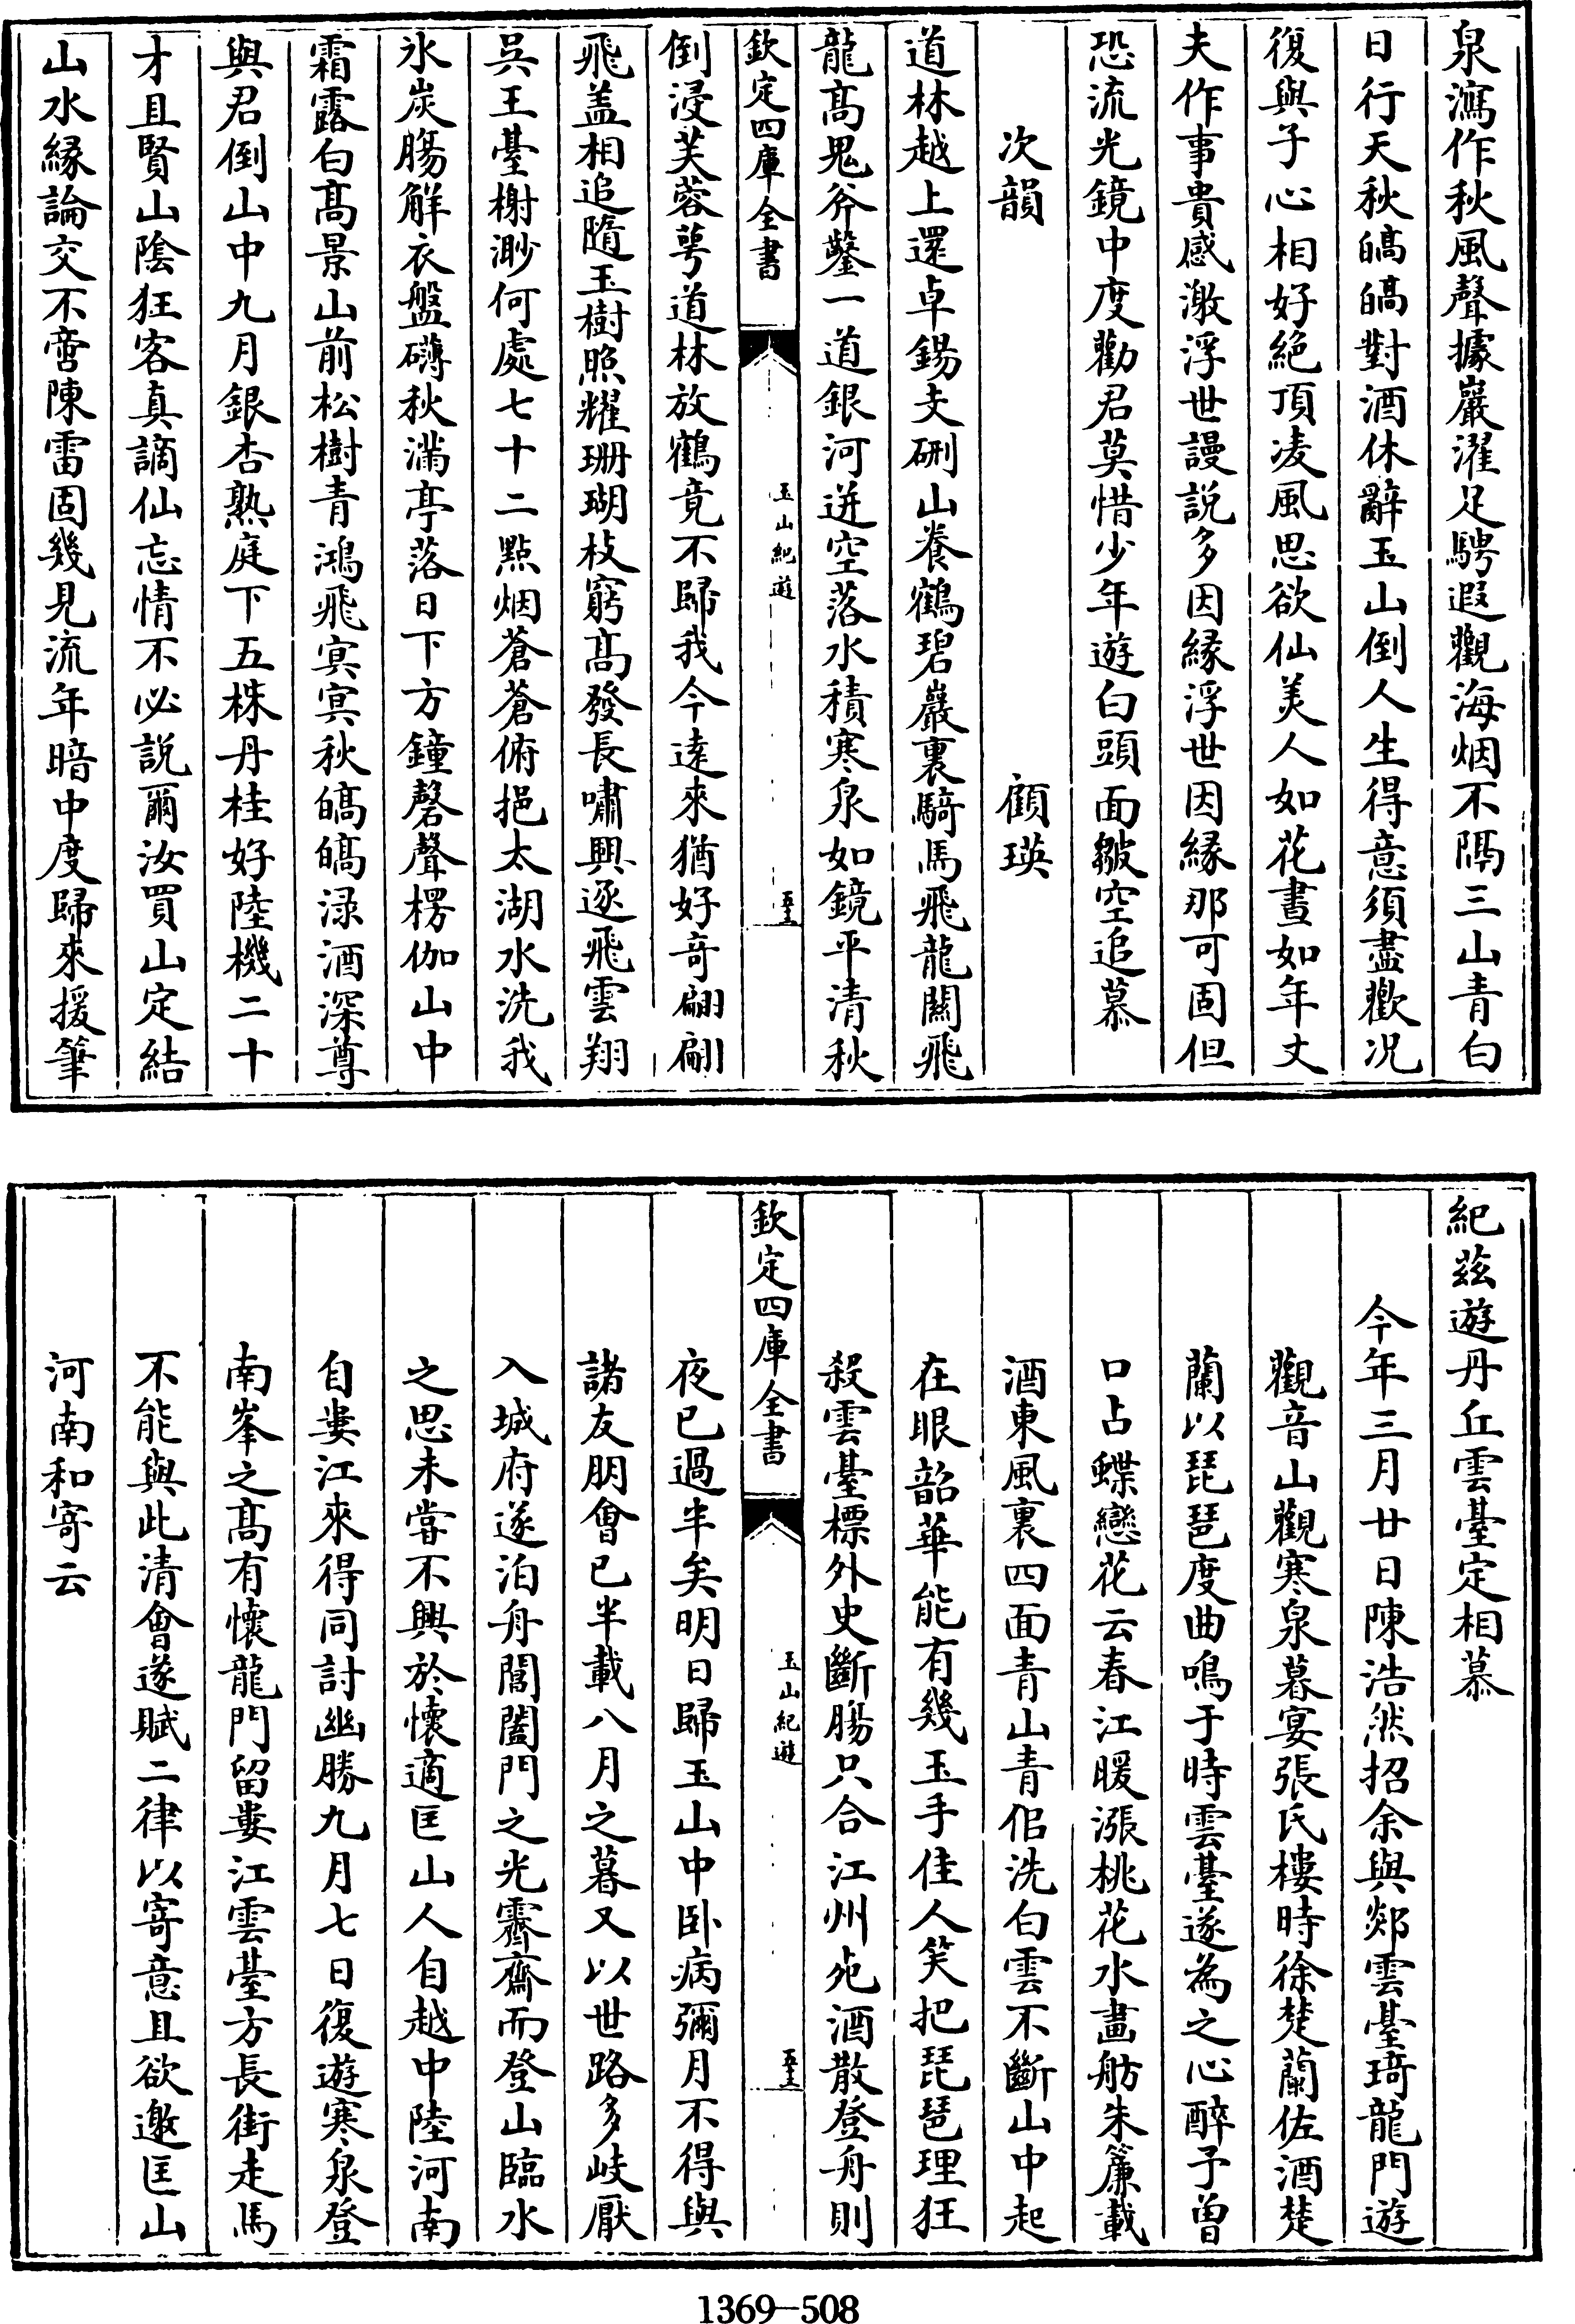 泉瀉作秋風聲據巖濯足騁遐觀海烟不隔三山青白
日行天秋皜皜對酒休辭玉山倒人生得意須盡歡况
復與子心相好絕頂凌風思欲仙美人如花晝如年丈
夫作事貴感激浮世謾說多因緣浮世因緣那可固但
恐流光鏡中度勸君莫惜少年遊白頭面皺空追慕
次韻　顧瑛
道林越上還卓錫支硎山養鶴碧巖裏騎馬飛龍闕飛
龍高鬼斧鑿一道銀河迸空落水積寒泉如鏡平清秋
欽定四庫全書　玉山紀遊
倒浸芙蓉萼道林放鶴竟不歸我今遠來猶好奇翩翩
飛盖相追隨玉樹照耀珊瑚枝窮高發長嘯興逐飛雲翔
吳王臺榭渺何處七十二點烟蒼蒼俯挹太湖水洗我
氷炭腸解衣盤礴秋滿亭落日下方鐘磬聲楞伽山中
霜露白高景山前松樹青鴻飛㝠㝠秋皜皜渌酒深尊
與君倒山中九月銀杏熟庭下五株丹桂好陸機二十
才且賢山陰狂客真謫仙忘情不必說爾汝買山定結
山水緣論交不啻陳雷固幾見流年暗中度歸來援筆
紀兹遊丹丘雲臺定相慕
今年三月廿日陳浩然招余與郯雲臺琦龍門遊
觀音山觀寒泉暮宴張氏樓時徐楚蘭佐酒楚
蘭以琵琶度曲嗚于時雲臺遂為之心醉予曾
口占蝶戀花云春江暖漲桃花水畫舫朱簾載
酒東風裏四面青山青佀洗白雲不斷山中起
在眼韶華能有幾玉手佳人笑把琵琶理狂
殺雲臺標外史斷腸只合江州死酒散登舟則
欽定四庫全書　玉山紀遊
夜已過半矣明日歸玉山中卧病彌月不得與
諸友朋會已半載八月之暮又以世路多岐厭
入城府遂泊舟閶闔門之光霽齋而登山臨水
之思未嘗不興於懷適匡山人自越中陸河南
自婁江來得同討幽勝九月七日復遊寒泉登
南峯之高有懷龍門留婁江雲臺方長街走馬
不能與此清會遂賦二律以寄意且欲邀匡山
河南和寄云
1369—508